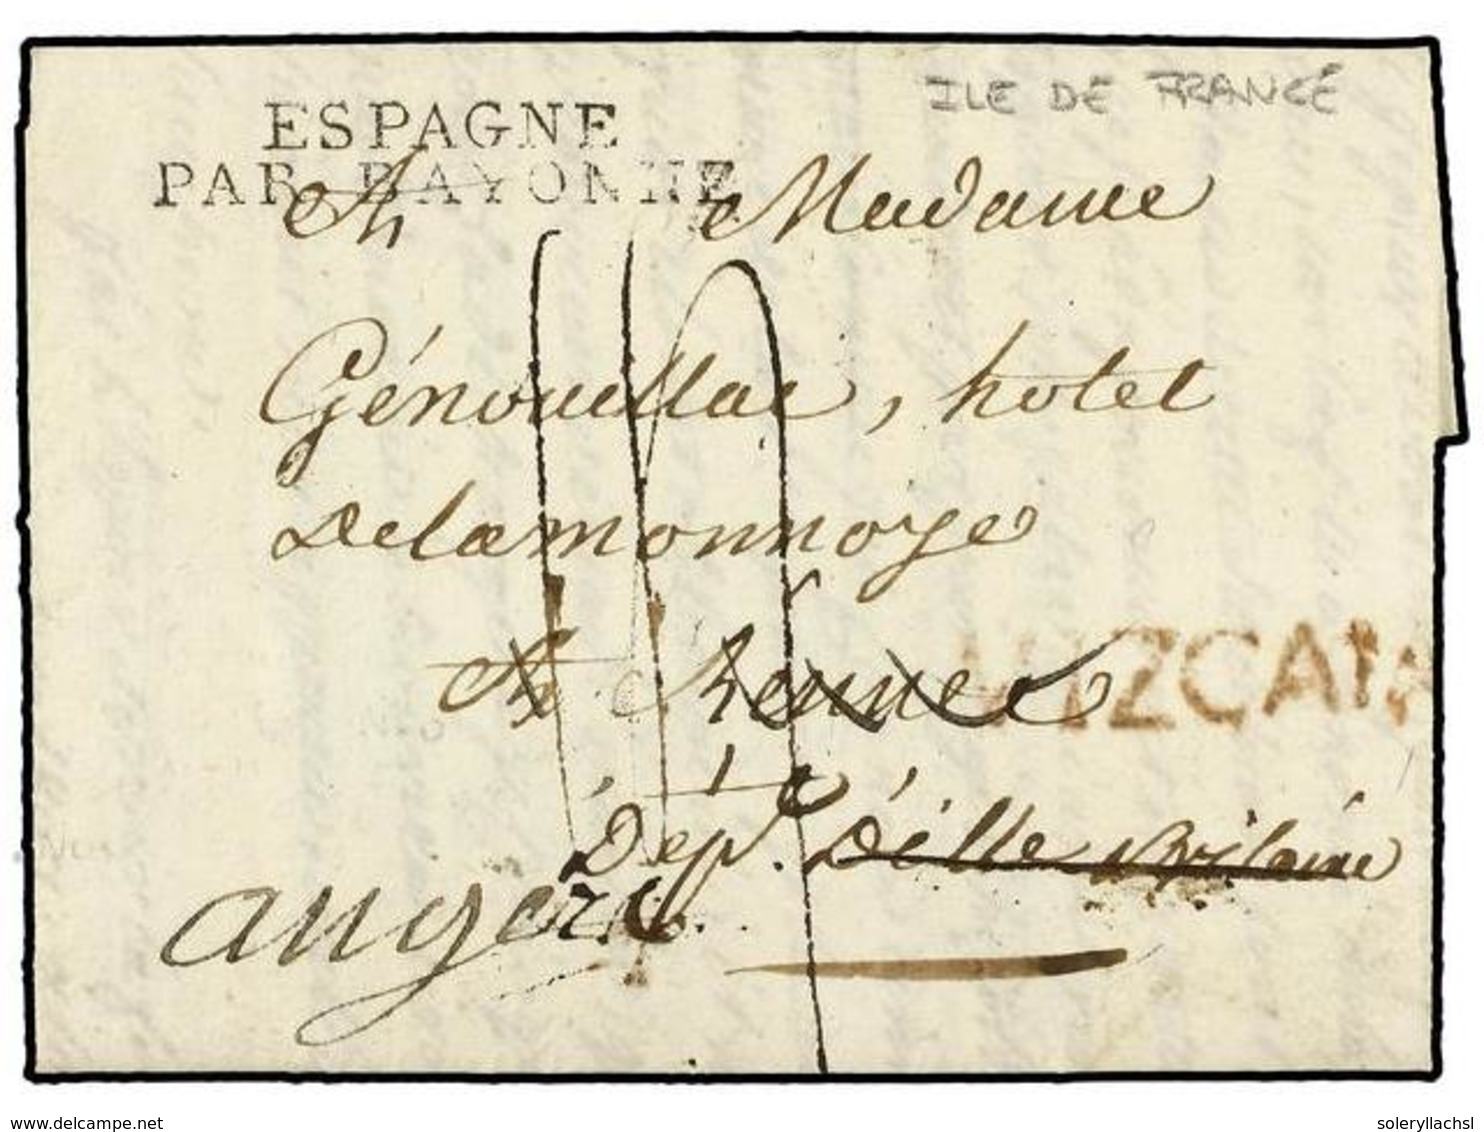 ILE DE FRANCE
ESPAGNE
PAR BAYONNE
A Madame
Génouillac, hotel
Delamonnoye
A Rennes
VIZCAYA
Dépt. D'ille & Vilaine
angers
www.delcampe.net
soleryllachsl